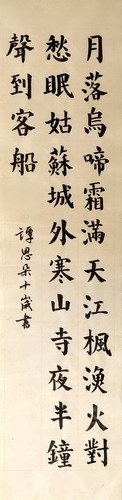 月落烏啼霜滿天江楓漁火對
愁眠姑蘇城外寒山寺夜半鐘
聲到客船
譚思朵十歲書